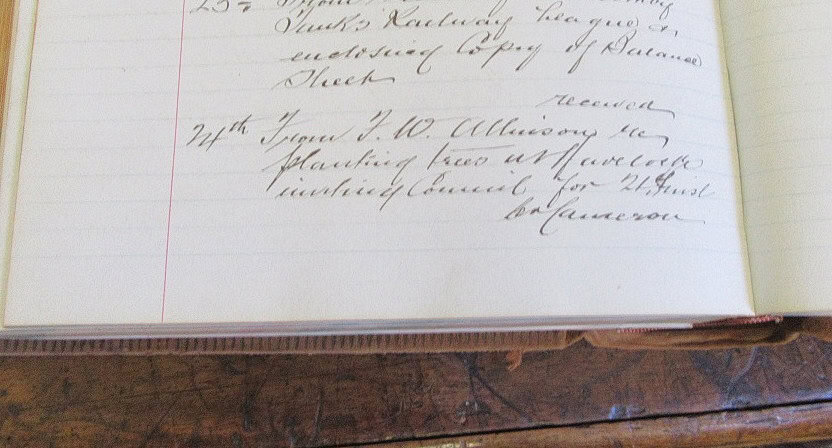 23rd From
Tanks Railway League &
enclosing Copy of Balance
Sheet
received
24th From F. W. Allinson re
planting trees at Havelock
inviting Council for 21st inst
Cr Cameron